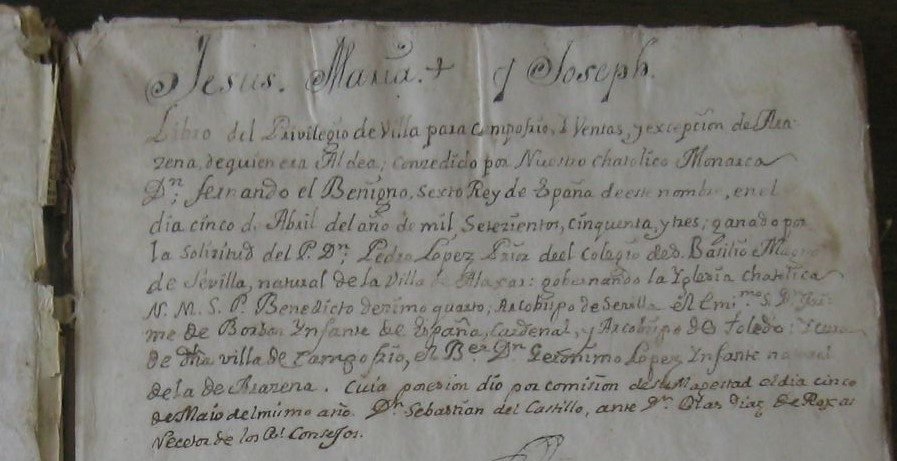 Jesus. Maria. + y Joseph.
Libro del Privilegio de Villa para Campofrio, ó Ventas, y excepcion de Ara-
zena, de quien era Aldea; concedido por Nuestro Chatolico Monarca
Dn. Fernando el Benigno, Sexto Rey de España de este nombre, en el
dia cinco de Abril del año de mil, Setezientos, cinquenta, y tres; ganado por
la Solizitud del P. Dn. Pedro Lopez Prior del Colegio de Sn. Basilio Magno
de Sevilla, natural de la Villa de Alaxar: gobernando la Yglesia Chatolica
N. M. S. P. Benedicto dezimo quarto; Arzobispo de Sevilla el Emi.mo S. Dn. Jai-
me de Borbon Ynfante de España, Cardenal, y Arzobispo de Toledo:
de dha villa de Campofrio, el Br. Dn. Geronimo Lopez Ynfante natural
de la de Arazena. Cuia posesion dio por comision de su Magestad el dia cinco
de Maio del mismo año. Dn. Sebastian del Castillo, ante Dn. Blas Diaz de Roxas
Rezetor de los Rs. Consejos.